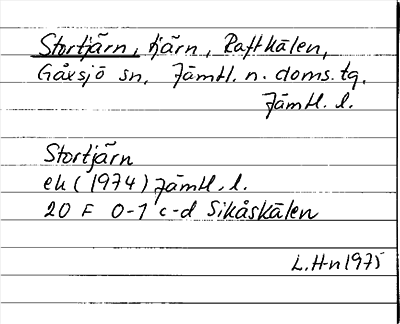 Stortjärn, tjärn, Raftkälen,
Gåxsjö sn. Jämtl. n. doms. tg.
Jämtl. l.
Stortjärn
ek (1974) Jämtl. l.
20 F 0-1 c-d Sikåskälen
L. H-n 1975